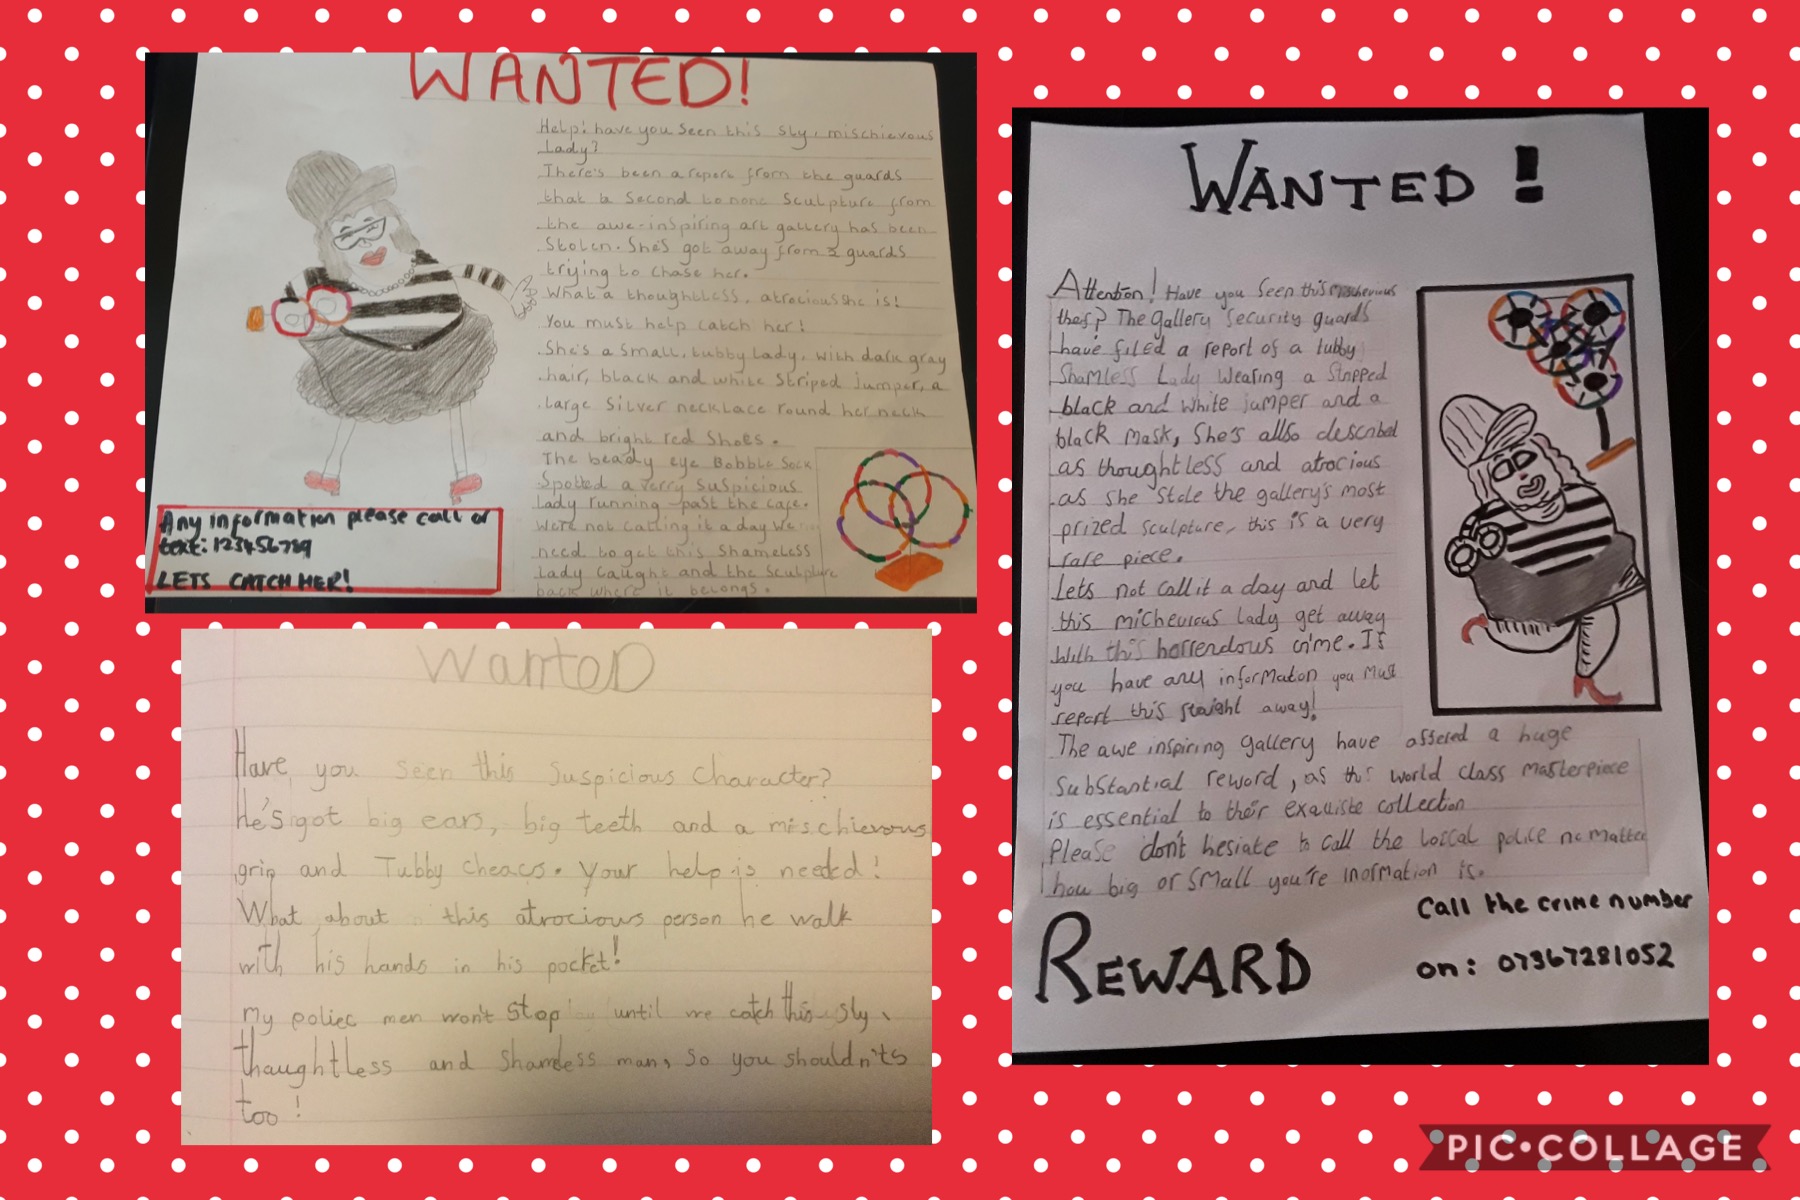 WANTED!
Help! have you seen this sly, mischievous
Lady?
There's been a report from the guards
that a second to none sculpture from
the awe-inspiring art gallery has been
stolen. She's got away from guards
trying to chase her.
What a thoughtless, atrocious she is!
You must help catch her!
She's a small, tubby Lady, with dark gray
hair, black and white striped jumper, a
large silver necklace round her neck
and bright red shoes.
The beady eye Bobble Sock
Spotted a verry suspicious
Lady running past the cafe.
We're not calling it a day We
need to get this shameless
Lady caught and the sculpture
back where it belongs.
Any information please call or
text: 123456789
LETS CATCH HER!
Wanted
Have you seen this suspicious character?
He's got big ears, big teeth and a mischievous
grin and Tubby cheacs. Your help is needed!
What about this atrocious person he walk
with his hands in his pocket!
my poliec men won't stop until we catch this sly,
thaughtless and shamless man, so you shouldn'ts
too!
WANTED!
Attention! Have you seen this mischevious
thef? The gallery security guards
have filed a report of a tubby
Shamless Lady Wearing a stripped
black and white jumper and a
black mask, She's allso described
as thoughtless and atrocious
as she stole the gallery's most
prized sculpture, this is a very
rare piece.
Lets not call it a day and let
this michevious lady get away
with this horrendous crime. If
you have any information you must
report this straight away!
The awe inspiring gallery have offered a huge
substantial reward, as this world class masterpiece
is essential to their exquiste collection
Please don't hesiate to call the loccal police no matter
how big or small you're inormation is.
REWARD
Call the crime number
on: 07367281052
PIC•COLLAGE